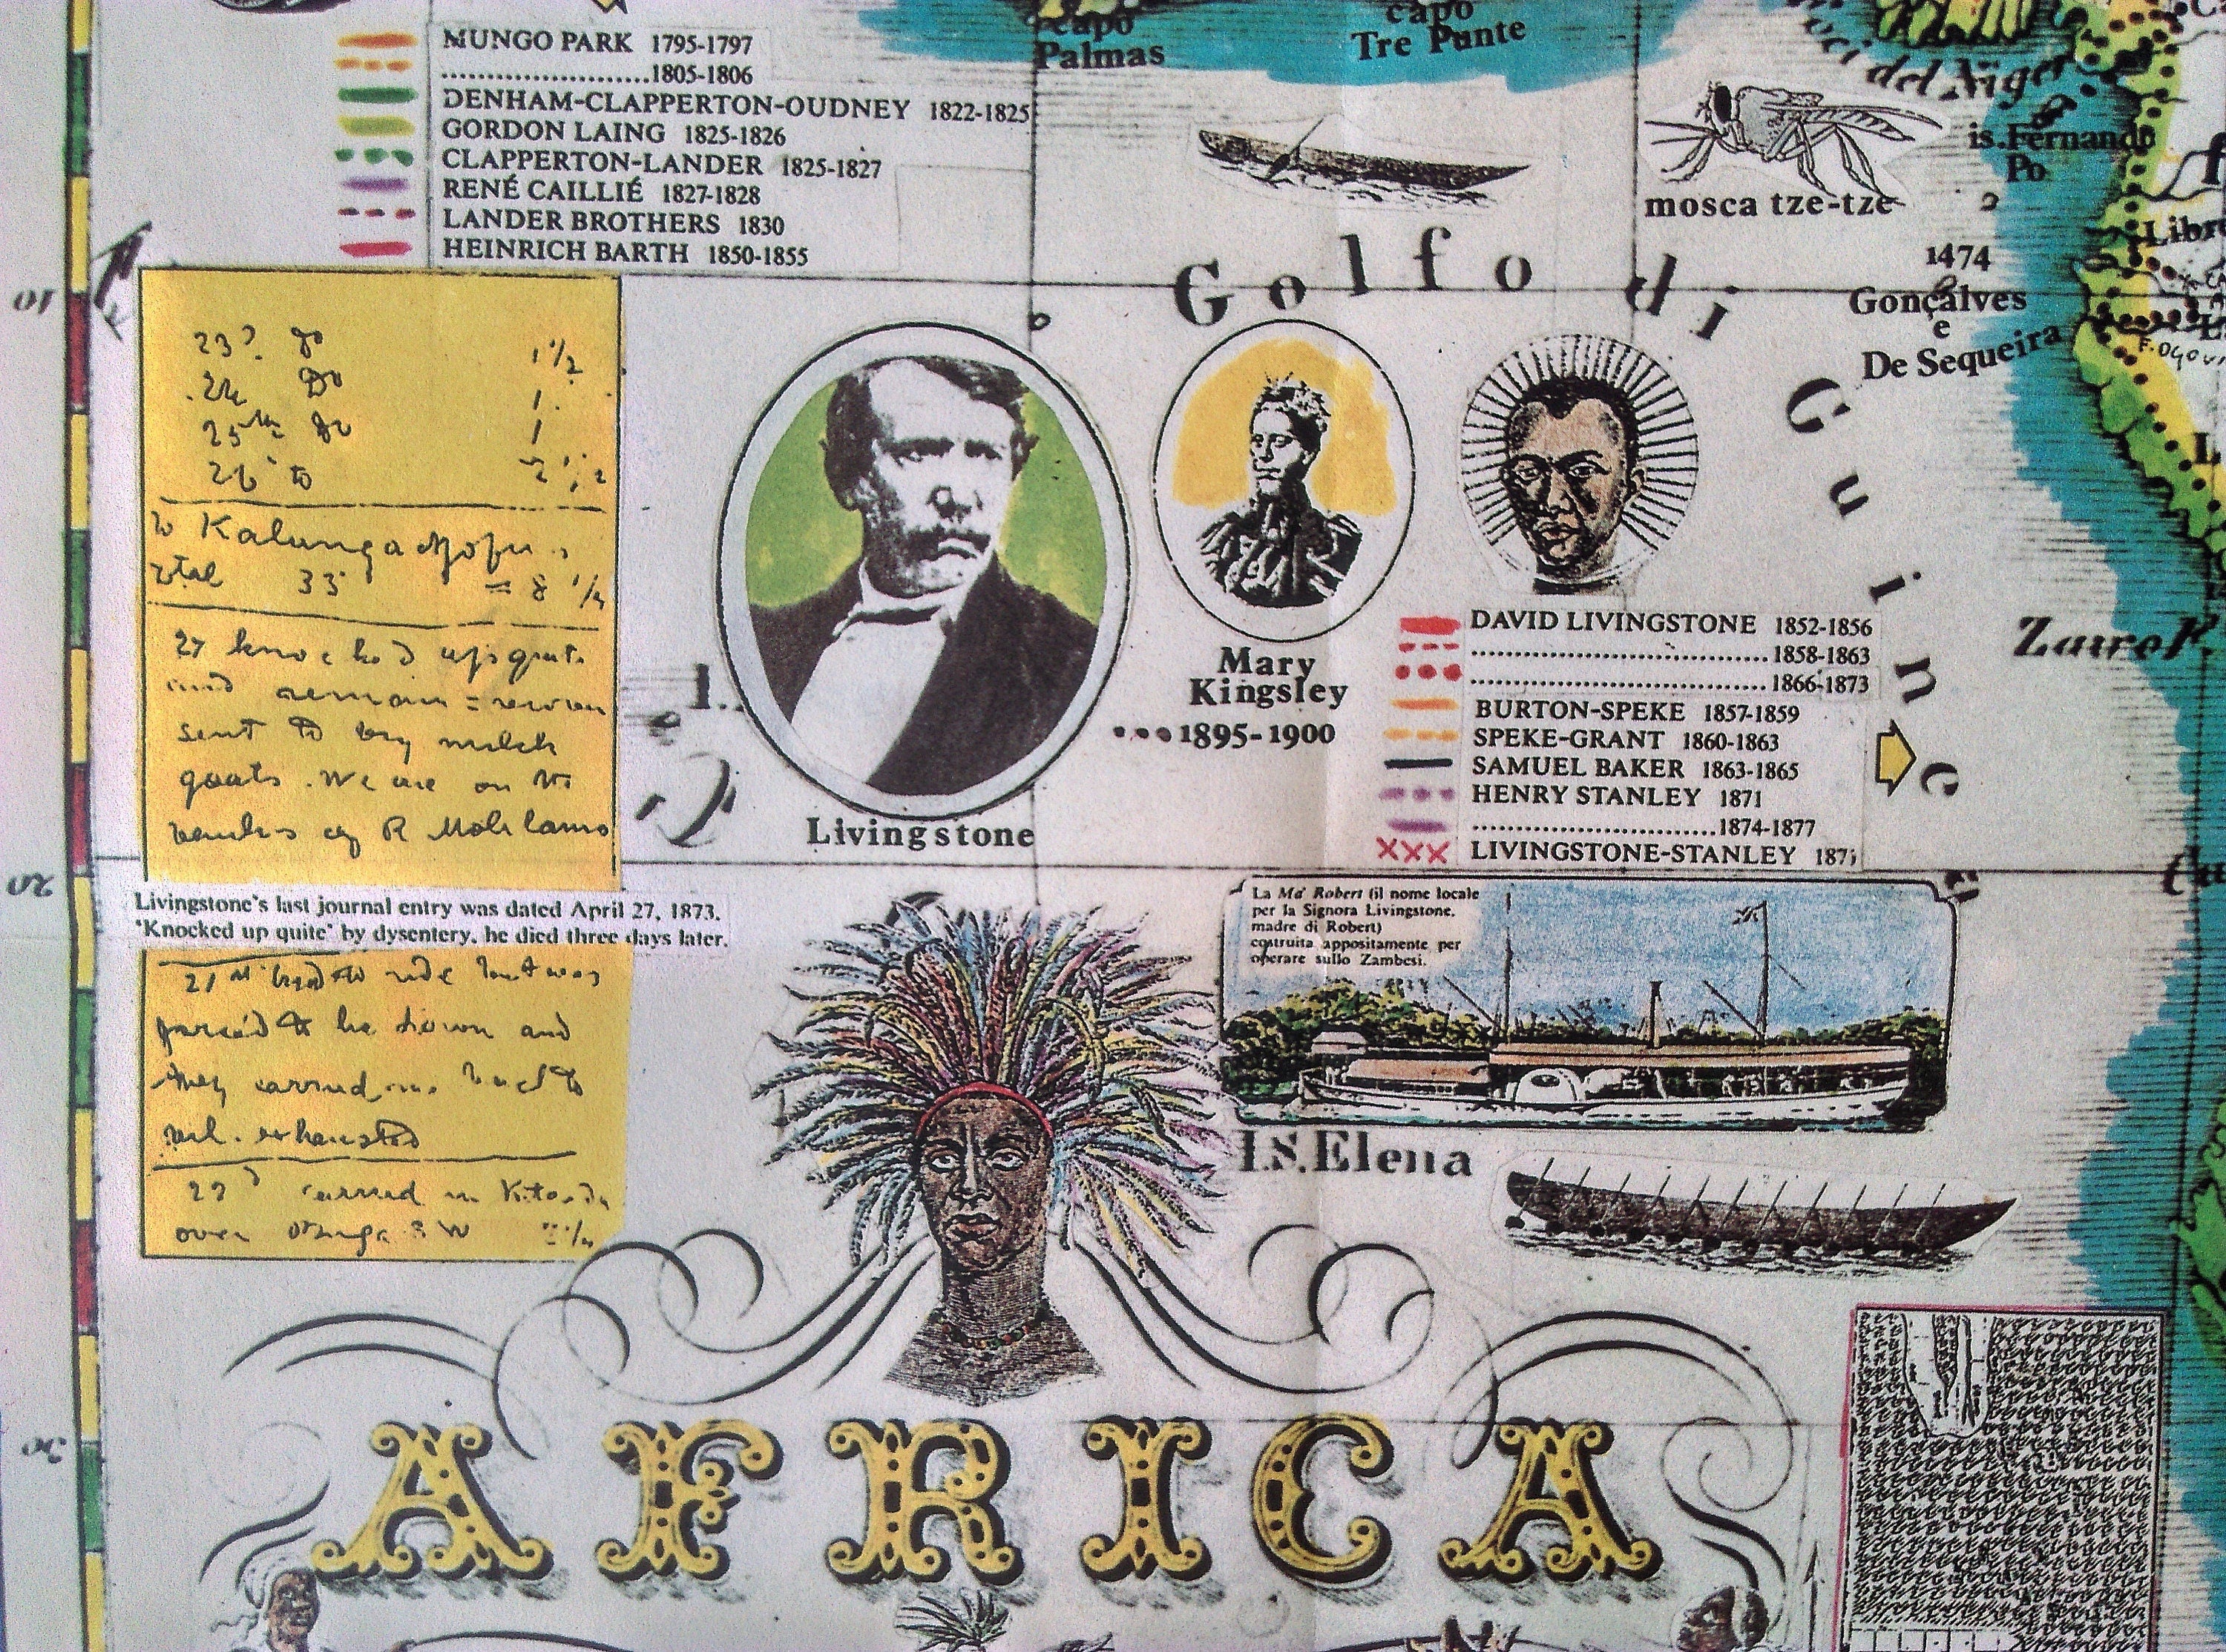 capo
Palmas
capo
Tre Punte
MUNGO PARK 1795-1797
.......................1805-1806
DENHAM-CLAPPERTON-OUDNEY 1822-1825
GORDON LAING 1825-1826
CLAPPERTON-LANDER 1825-1827
RENÉ CAILLIÉ 1827-1828
LANDER BROTHERS 1830
HEINRICH BARTH 1850-1855
del Niger
is. Fernando
Po
mosca tze-tze
1474
Gonçalves
e
De Sequeira
Golfo di Guinea
10
23 do 1 1/2
24 Do 1
25th Do 1
26 to 2 1/2
to Kalunganjofu
total 33 = 8 1/4
27 knocked up quite
and remain = recover
sent to buy milch
goats. We are on the
banks of R Molilamo
Livingstone's last journal entry was dated April 27, 1873.
'Knocked up quite' by dysentery, he died three days later.
21st tried to ride but was
forced to lie down and
they carried me back to
vil. exhausted
22d carried in Kitanda
over Buga S W 2 1/4
Livingstone
Mary
Kingsley
1895-1900
DAVID LIVINGSTONE 1852-1856
.................................1858-1863
.................................1866-1873
BURTON-SPEKE 1857-1859
SPEKE-GRANT 1860-1863
SAMUEL BAKER 1863-1865
HENRY STANLEY 1871
...........................1874-1877
XXX LIVINGSTONE-STANLEY 1871
Zaire F.
20
La Ma' Robert (il nome locale
per la Signora Livingstone,
madre di Robert)
costruita appositamente per
operare sullo Zambesi.
I.S. Elena
30
AFRICA